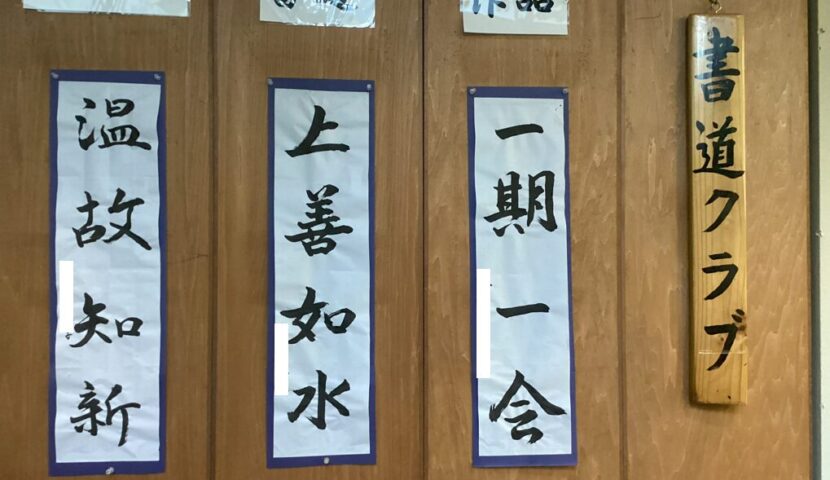 書道クラブ
作品
一期一会
上善如水
温故知新